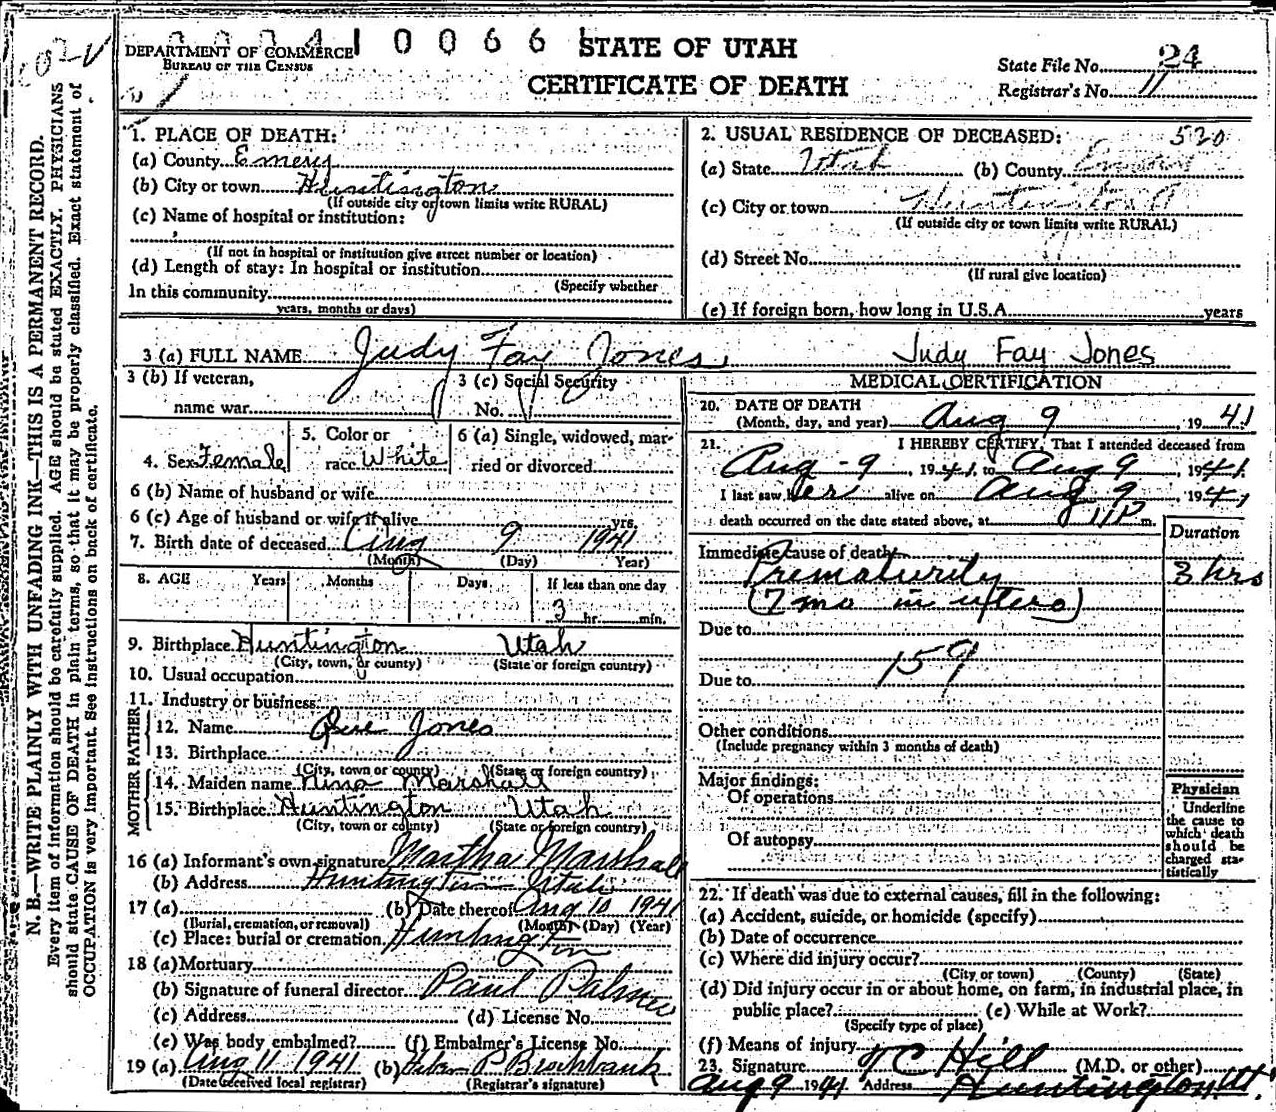 DEPARTMENT OF COMMERCE
BUREAU OF THE CENSUS
10066
STATE OF UTAH
CERTIFICATE OF DEATH
State File No. 24
Registrar's No. 11
N. B.—WRITE PLAINLY WITH UNFADING INK—THIS IS A PERMANENT RECORD.
Every item of information should be carefully supplied. AGE should be stated EXACTLY. PHYSICIANS
should state CAUSE OF DEATH in plain terms, so that it may be properly classified. Exact statement of
OCCUPATION is very important. See instructions on back of certificate.
1. PLACE OF DEATH:
(a) County Emery
(b) City or town Huntington
(If outside city or town limits write RURAL)
(c) Name of hospital or institution:
(If not in hospital or institution give street number or location)
(d) Length of stay: In hospital or institution
(Specify whether
In this community
years, months or days)
2. USUAL RESIDENCE OF DECEASED: 520
(a) State Utah (b) County Emery
(c) City or town Huntington
(If outside city or town limits write RURAL)
(d) Street No.
(If rural give location)
(e) If foreign born, how long in U.S.A. years
3 (a) FULL NAME Judy Fay Jones Judy Fay Jones
3 (b) If veteran,
name war
3 (c) Social Security
No.
4. Sex Female
5. Color or
race White
6 (a) Single, widowed, mar-
ried or divorced
6 (b) Name of husband or wife
6 (c) Age of husband or wife if alive yrs.
7. Birth date of deceased Aug 9 1941
(Month) (Day) Year)
8. AGE Years Months Days If less than one day
3 hr. min.
9. Birthplace Huntington Utah
(City, town, or county) (State or foreign country)
10. Usual occupation
11. Industry or business
FATHER
12. Name Jones
13. Birthplace
(City, town or county) (State or foreign country)
MOTHER
14. Maiden name Nina Marshall
15. Birthplace Huntington Utah
(City, town or county) (State or foreign country)
16 (a) Informant's own signature Martha Marshall
(b) Address Huntington Utah
17 (a) (b) Date thereof Aug 10 1941
(Burial, cremation, or removal) (Month) (Day) (Year)
(c) Place: burial or cremation Huntington
18 (a) Mortuary
(b) Signature of funeral director Paul Palmer
(c) Address (d) License No.
(e) Was body embalmed? (f) Embalmer's License No.
19 (a) Aug 11 1941 (b) P Brockbank
(Date received local registrar) (Registrar's signature)
MEDICAL CERTIFICATION
20. DATE OF DEATH
(Month, day, and year) Aug 9, 1941
21. I HEREBY CERTIFY, That I attended deceased from
Aug - 9, 1941, to Aug 9 1941
I last saw her alive on Aug 9, 1941
death occurred on the date stated above, at 11P m.
Duration
Immediate cause of death
Prematurity 3 hrs
(7 mo in utero)
Due to
159
Due to
Other conditions
(Include pregnancy within 3 months of death)
Major findings:
Of operations
Of autopsy
Physician
Underline
the cause to
which death
should be
charged sta-
tistically
22. If death was due to external causes, fill in the following:
(a) Accident, suicide, or homicide (specify)
(b) Date of occurrence
(c) Where did injury occur?
(City or town) (County) (State)
(d) Did injury occur in or about home, on farm, in industrial place, in
public place? (e) While at Work?
(Specify type of place)
(f) Means of injury
23. Signature T C Hill (M.D. or other)
Aug 9 1941 Address Huntington, Ut.